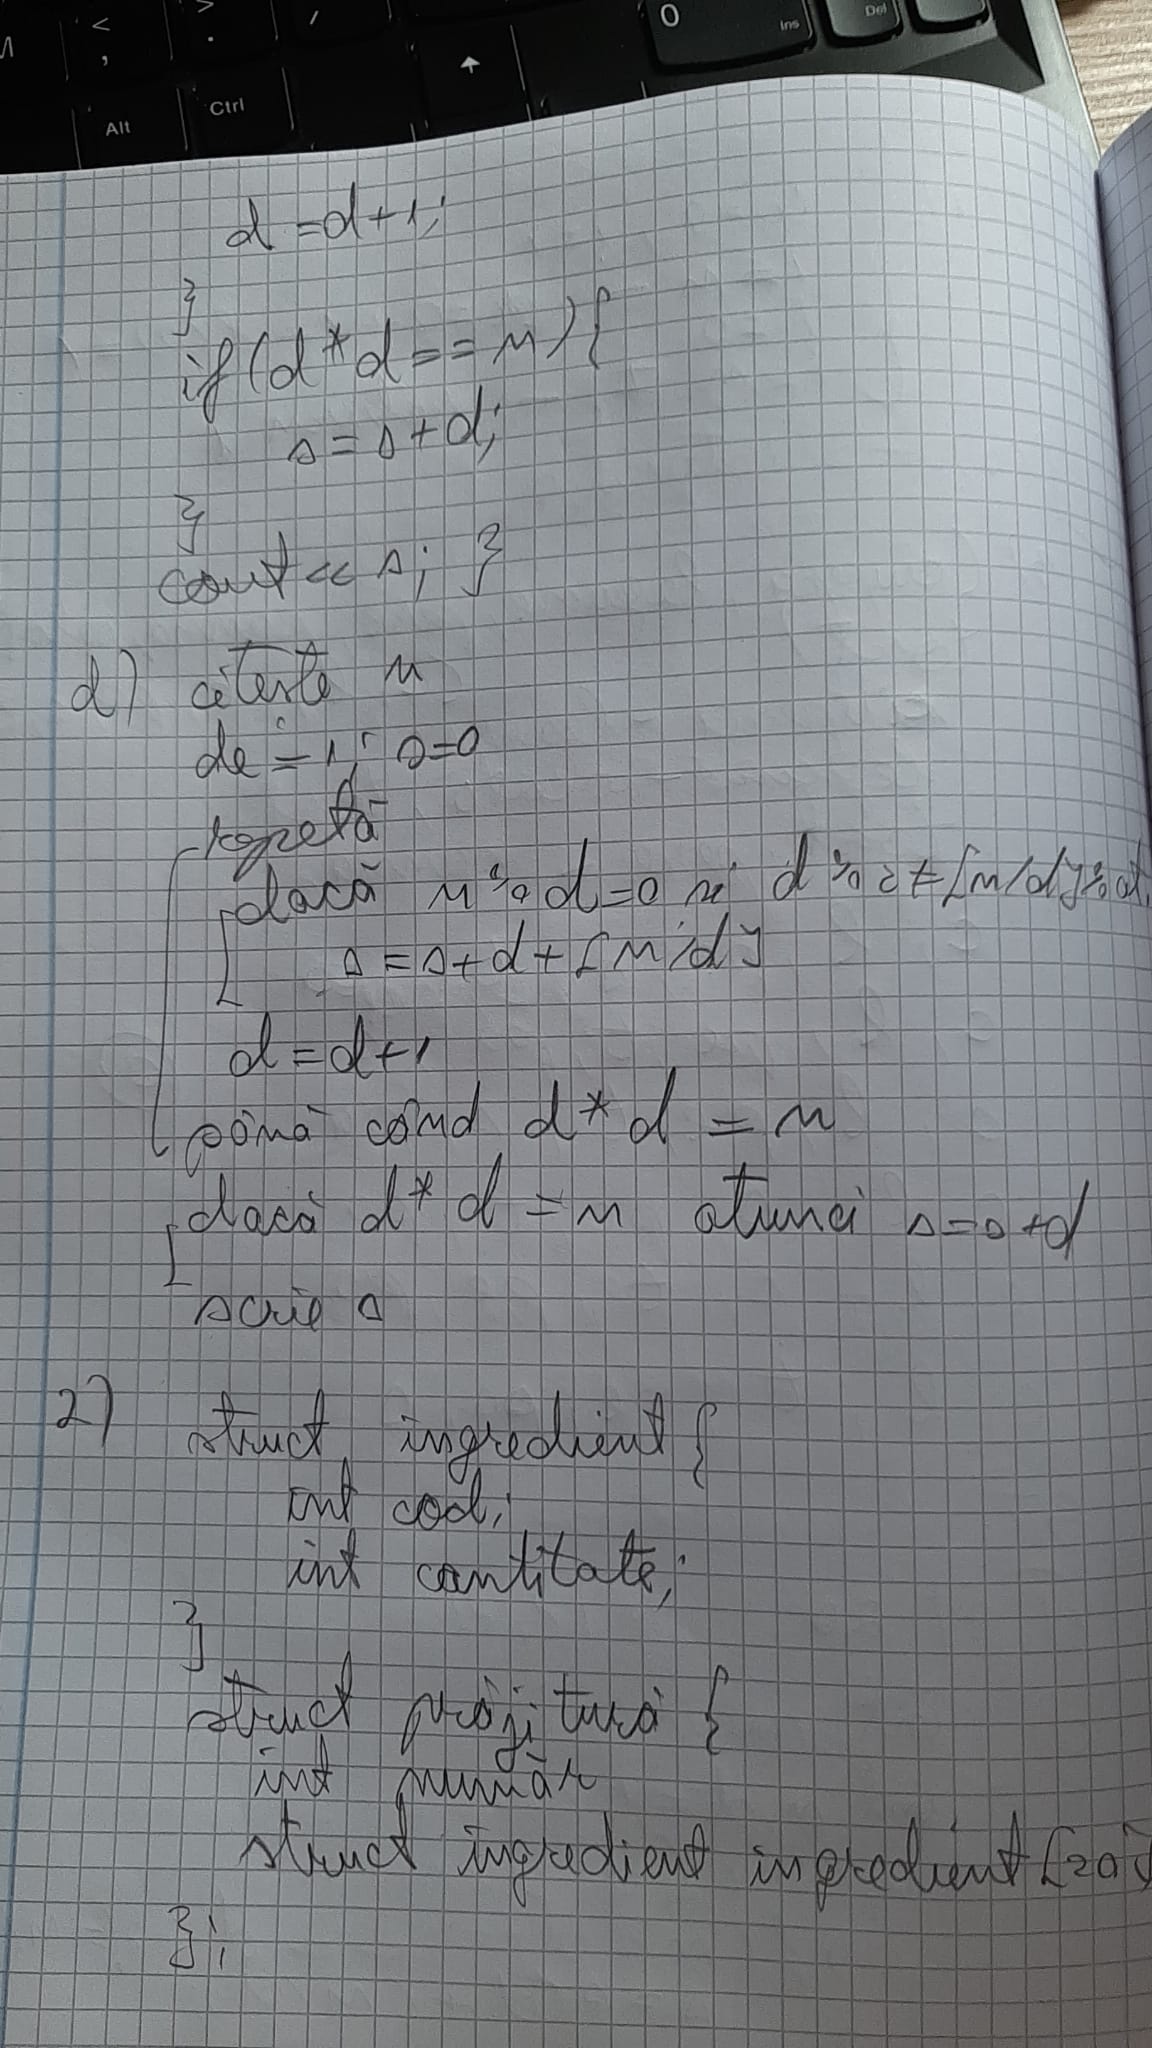 Alt
Ctrl
0
Ins
Del
d=d+1;
}
if(d*d==n){
s=s+d;
}
cout<<s; }
d) citește n
s=0
repetă
dacă n%d=0 și d%2≠[n/d]%
s=s+d+[n/d]
d=d+1
până când d*d=n
dacă d*d=n atunci s=s+d
scrie s
2) struct ingredient{
int cod;
int cantitate;
}
struct prăjitură {
int număr
struct ingredient ingredient[20]
};